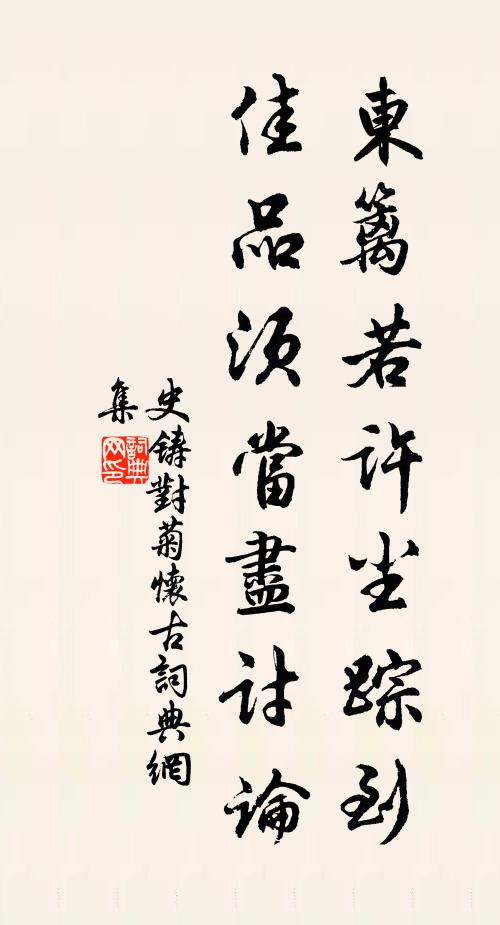 東籬若許尘踪到
佳品須當盡討論
史鑄對菊懷古詞典網
集
詞典網印